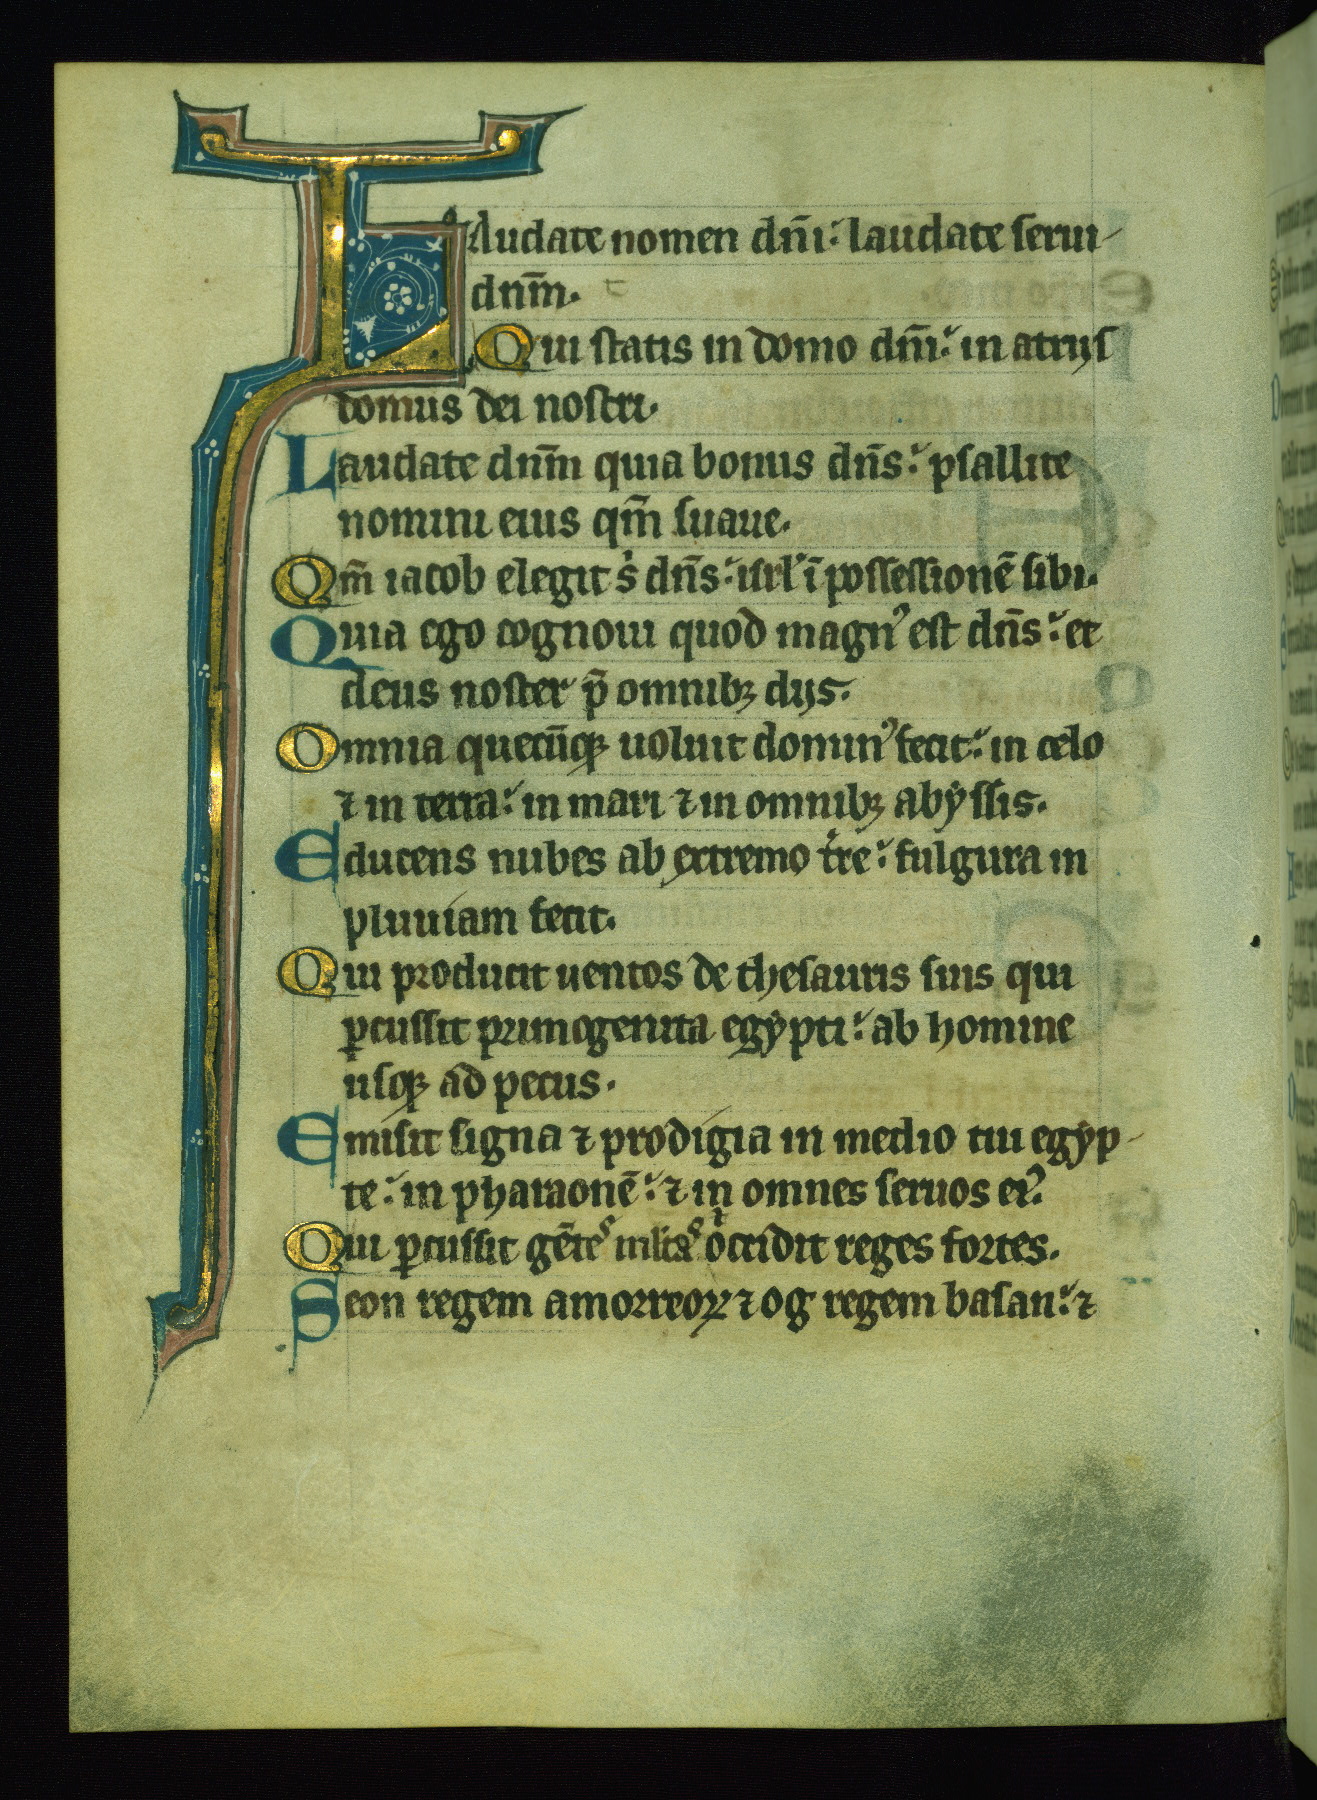 LAudate nomen dñi: laudate serui
dnm̄.
Qui statis in domo dñi: in atrijs
domus dei nostri.
Laudate dnm̄ quia bonus dñs: psallite
nomini eius qm̄ suaue.
Qm̄ iacob elegit s̓ dñs: isrl̓ ī possessionē sibi.
Quia ego cognoui quod magnꝰ est dñs: et
deus noster p̄ omnibꝫ dijs.
Omnia quecūqꝫ uoluit dominꝰ fecit: in celo
⁊ in terra: in mari ⁊ in omnibꝫ abẏssis.
Educens nubes ab extremo tr̓e: fulgura in
pluuiam fecit.
Qui producit uentos de thesauris suis qui
ꝑcussit primogenita egẏpti: ab homine
usqꝫ ad pecus.
Emisit signa ⁊ prodigia in medio tui egẏp-
te: in pharaonē: ⁊ in omnes seruos eiꝰ.
Qui ꝑcussit gētes ml̓tas ⁊ occidit reges fortes.
Seon regem amorreoꝝ ⁊ og regem basan: ⁊